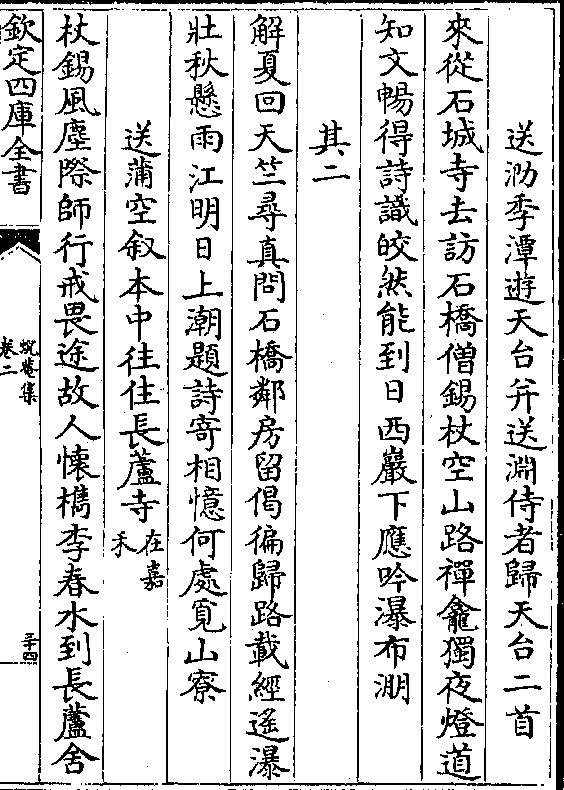 送泐季潭遊天台并送淵侍者歸天台二首
來從石城寺去訪石橋僧錫杖空山路禪龕獨夜燈道
知文暢得詩識皎然能到日西巖下應吟瀑布淜
其二
解夏回天竺尋真問石橋鄰房留偈徧歸路載經遙瀑
壯秋懸雨江明日上潮題詩寄相憶何處覓山寮
送蒲空叙本中往住長蘆寺在嘉禾
杖錫風塵際師行戒畏途故人懷檇李春水到長蘆舍
欽定四庫全書
蛻菴集
卷二
二十四